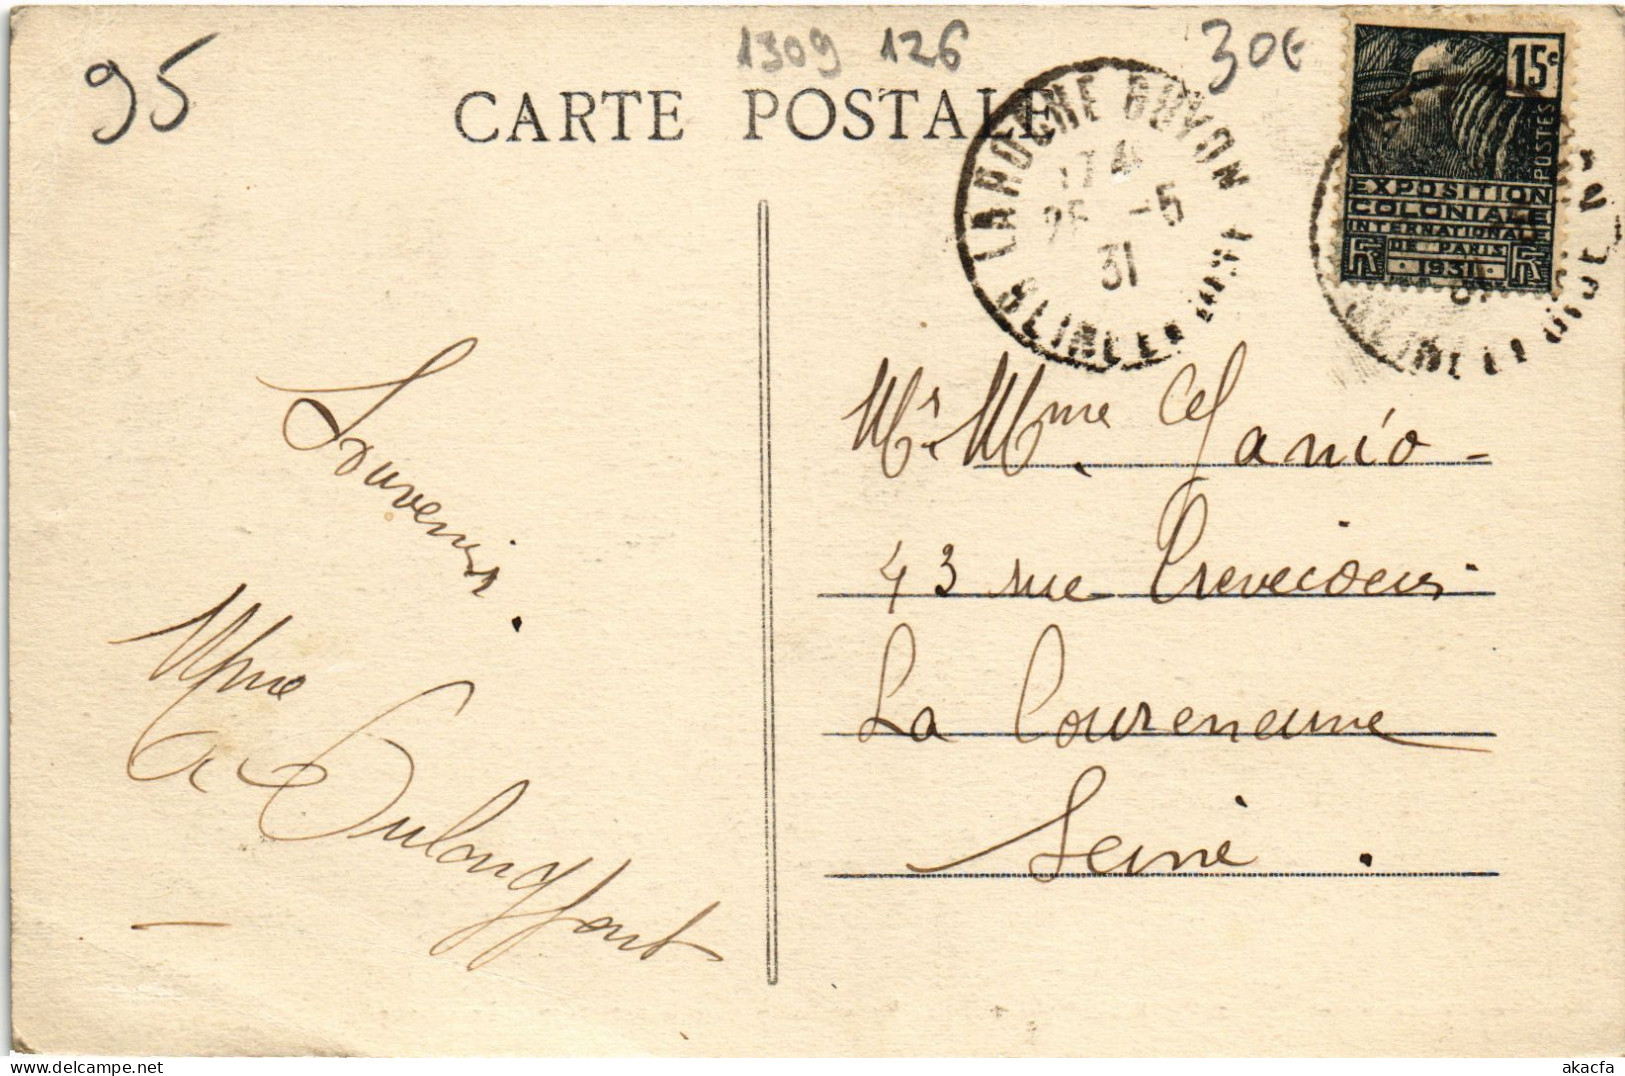 95
1309 126
30€
CARTE POSTALE
LA ROCHE GUYON
17 4
25 -5
31
SEINE ET OISE
15c
POSTES
EXPOSITION
COLONIALE
INTERNATIONALE
DE PARIS
RF · 1931 · RF
Souvenir.
Mme
Mr. Mme
43 rue Crevecoeur
La Courneuve
Seine.
akacfa